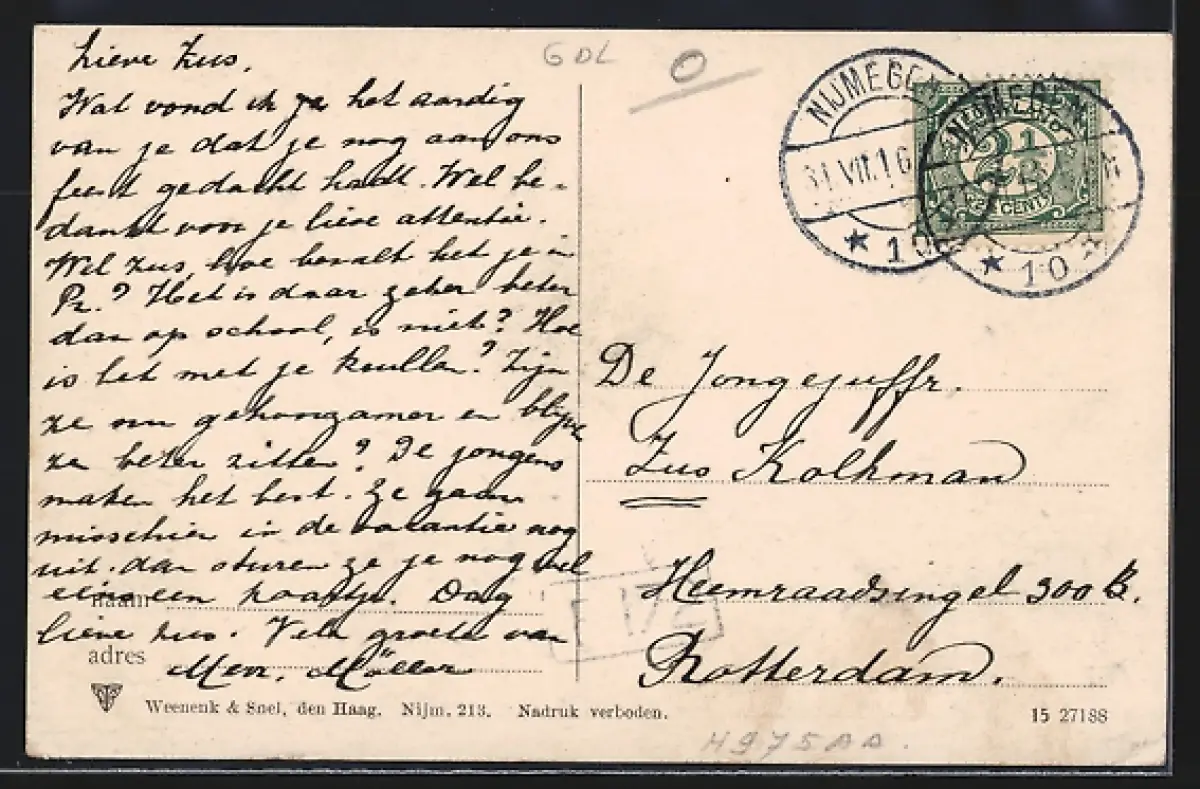 Lieve Zus,
Wat vond ik je het aardig
van je dat je nog aan ons
feest gedacht hadt. Wel be-
dankt voor je lieve attentie.
Wel Zus, hoe bevalt het je in
Pr.? Het is daar zeker beter
dan op school, is niet? Hoe
is het met je krullen? Zijn
ze nu gehoorzamer en blijven
ze beter zitten? De jongens
maken het best. Ze gaan
misschien in de vacantie nog
uit. dan sturen ze je nog wel
eens een kaartje. Dag
lieve Zus. Vele groeten van
Mevr. Möller
naam
adres
Weenenk & Snel, den Haag. Nijm. 213. Nadruk verboden.
GDL
NIJMEGEN
31.VII.16
10
NIJMEGEN
10
NEDERLAND
2½
CENT
De Jongejuffr.
Zus Kolkman
Heemraadsingel 300 B.
Rotterdam.
15 27188
H975AA.